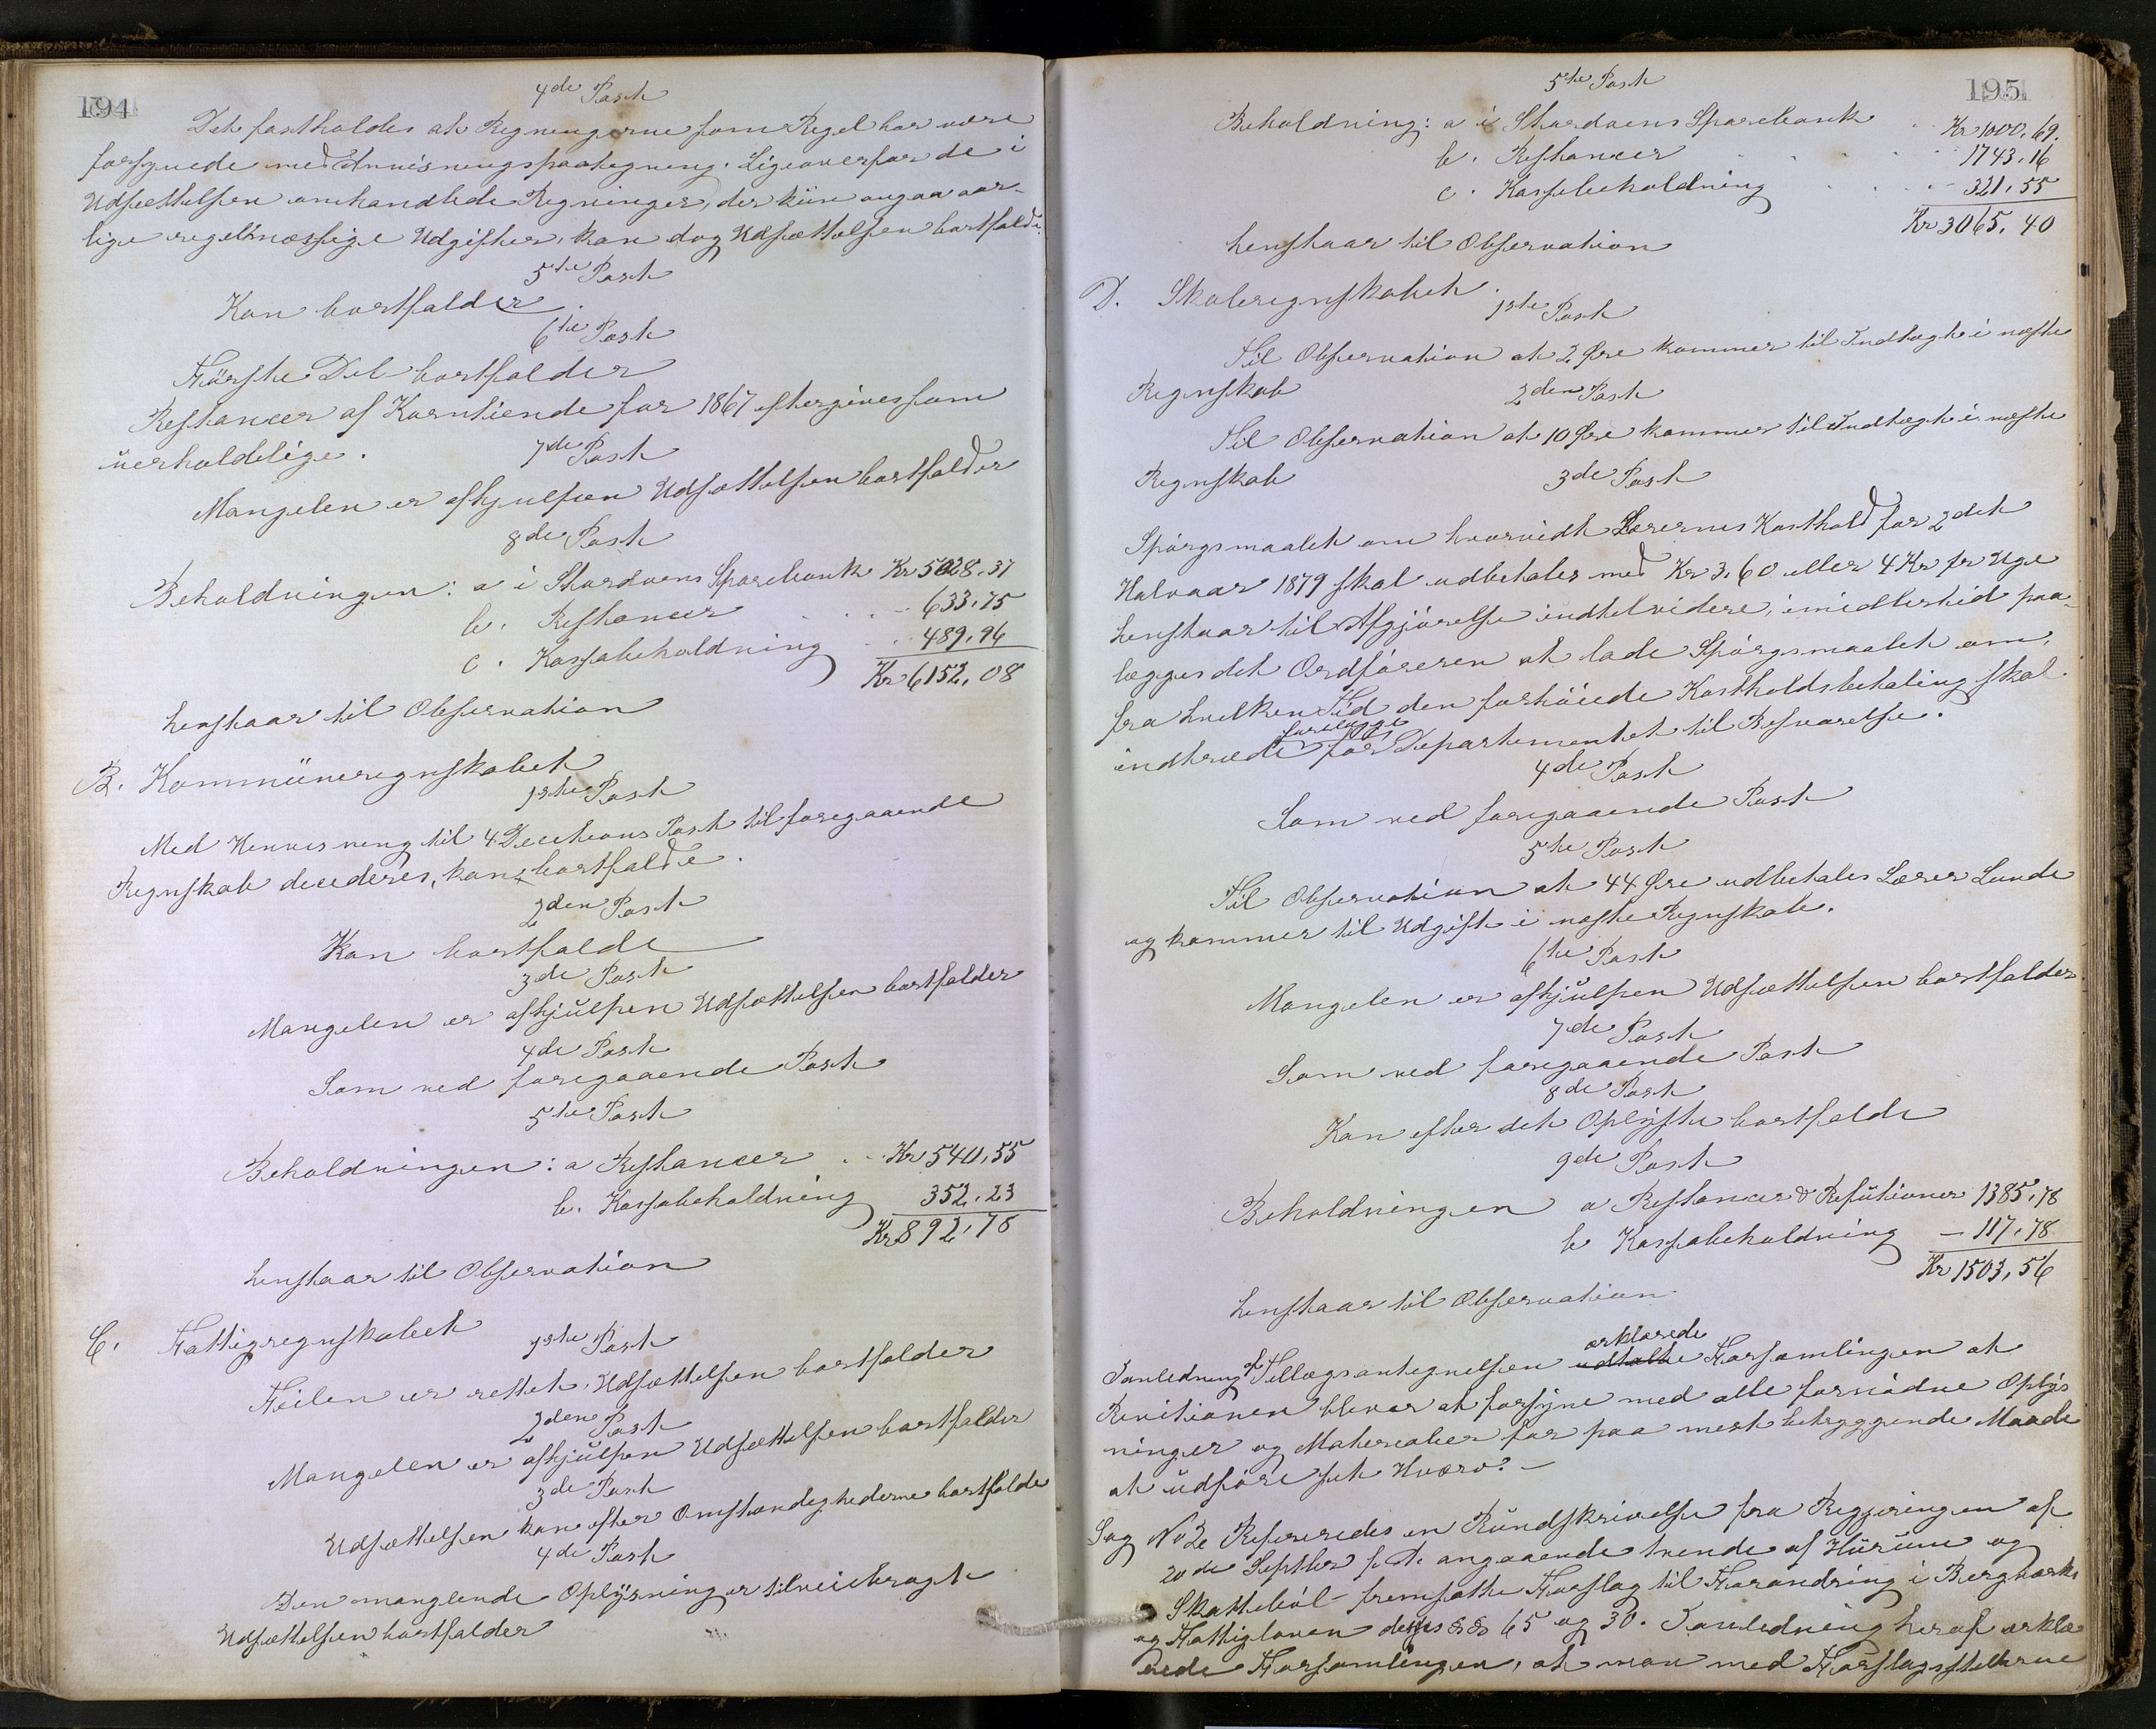 194
4de Post
Det fastholdes at Regningerne som Regel bør være
forsynede med Anvisningspaategning. Ligeoverfor de i
Udsættelsen omhandlede Regninger, der kün angaa aar-
lige regelmæssige Udgifter, kan dog Udsættelsen bortfalde.
5te Post
Kan bortfalder.
6te Post
Förste Del bortfalder
Restancer af Korntiende for 1867 eftergives som
üerholdelige.
7de Post
Mangelen er afhjulpen Udsættelsen bortfalder
8de Post
Beholdningen: a i Stordøens Sparebank Kr 5028.37
b. Restancer . . - 633.75
c. Kassabeholdning - 489.96
Kr 6152.08
henstaar til Observation
B. Kommüneregnskabet
1ste Post
Med Henvisning til 4 Decitions Post til foregaaende
Regnskab decideres, kan bortfalde.
2den Post
Kan bortfalde
3de Post
Mangelen er afhjülpen Udsættelsen bortfalder
4de Post
Som ved foregaaende Post
5te Post
Beholdningen: a Restancer . . Kr 540,55
b. Kassabeholdning 352.23
Kr 892.78
henstaar til Observation
C. Fattigregnskabet
1ste Post
Feilen er rettet, Udsættelsen bortfalder
2den Post
Mangelen er afhjülpen Udsættelsen bortfalder
3de Post
Udsættelsen kan efter Omstændighederne bortfalde
4de Post
Den manglende Oplÿsning er tilveiebragt
Udsættelsen bortfalder
195
5te Post
Beholdning: a i Stordøens Sparebank . . Kr 1000.69.
b. Restancer . . . . 1743.16
c. Kassebeholdning . . . - 321.55
Kr 3065.40
henstaar til Observation
D. Skoleregnskabet.
1ste Post
Til Observation at 2 Øre kommer til Indtægt i næste
Regnskab
2den Post
Til Observation at 10 Øre kommer til Indtægt i næste
Regnskab
3de Post
Spörgsmaalet om hvorvidt Lærernes Kosthold for 2det
Halvaar 1879 skal udbetales med Kr 3.60 eller 4 Kr pr Uge
henstaar til Afgjörelse indtil videre, imidlertid paa-
lægges det Ordföreren at lade Spörgsmaalet om,
fra hvilken Tid den forhöiede Kostholdsbetaling skal
indtræde forelægge for Departementet til Besvarelse.
4de Post
Som ved foregaaende Post
5te Post
Til Observation at 44 Øre udbetales Lærer Lunde
og kommer til Udgift i næste Regnskab.
6te Post
Mangelen er afhjülpen Udsættelsen bortfalder
7de Post
Som ved foregaaende Post
8de Post
Kan efter det Oplÿste bortfalde
9de Post
Beholdningen a Restancer & Refütioner 1385,78
b Kassabeholdning - 117,78
Kr 1503,56
henstaar til Observation
Ianledning af Tillægsantegnelsen udtalte erklærede Forsamlingen at
Revitionen bliver at forsÿne med alle fornödne Oplÿs
ninger og Materialier for paa mest betryggende Maade
at üdföre sit Hværv. -
Sag No 2 Refereredes en Ründskrivelse fra Regjeringen af
20de Septber f. A. angaaende tvende af Hürüm og
Skatteböl fremsatte Forslag til Forandring i Bergværks
og Fattigloven deres §§ 65 og 30. Ianledning heraf erklæ
rede Forsamlingen, at man med Forslagsstillerne